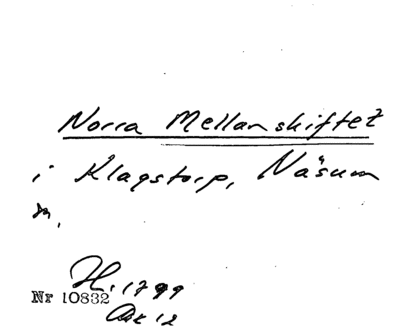 Norra Mellanskiftet
i Klagstorp, Näsum
H. 1799
Nr 10832
Ask 12